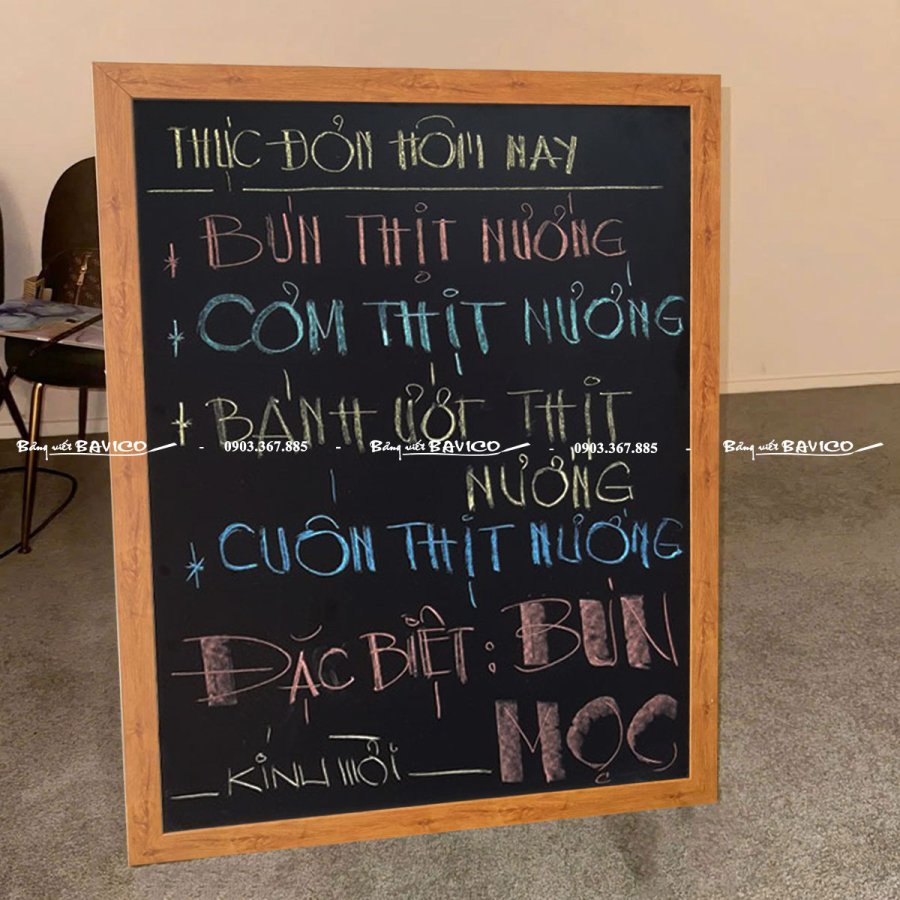 THỰC ĐƠN HÔM NAY
* BÚN THỊT NƯỚNG
* CƠM THỊT NƯỚNG
* BÁNH ƯỚT THỊT
NƯỚNG
Bảng viết BAVICO - 0903.367.885 - Bảng viết BAVICO - 0903.367.885 - Bảng viết BAVICO
* CUỐN THỊT NƯỚNG
ĐẶC BIỆT: BÚN
MỌC
KÍNH MỜI